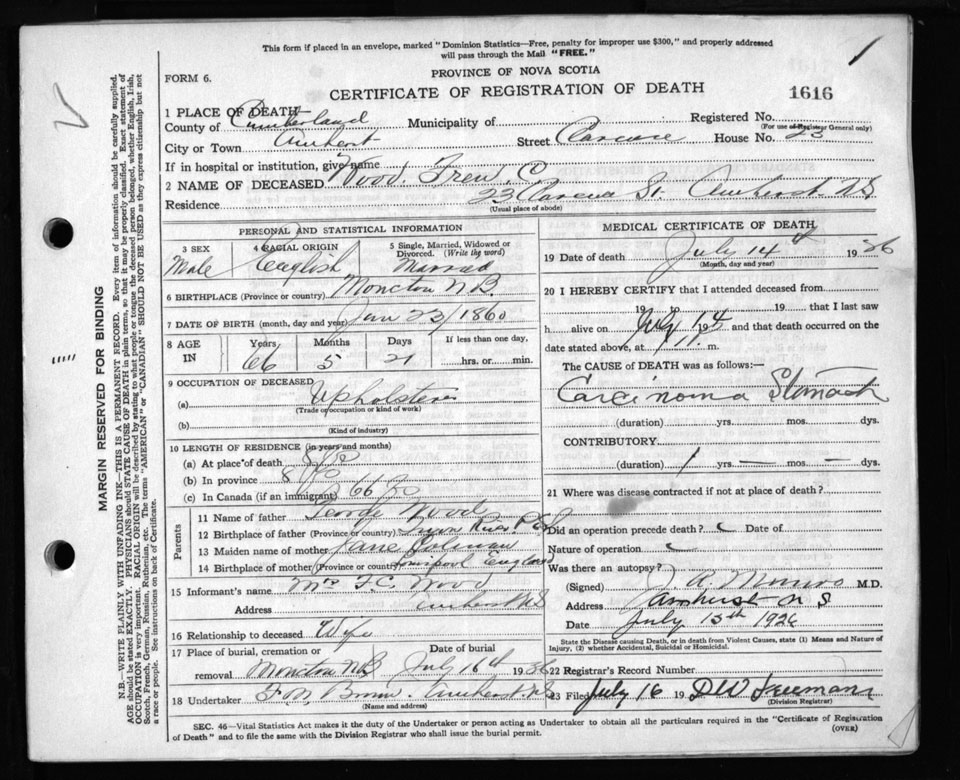 This form if placed in an envelope, marked "Dominion Statistics—Free, penalty for improper use $300," and properly addressed
will pass through the Mail "FREE."
FORM 6.
PROVINCE OF NOVA SCOTIA
CERTIFICATE OF REGISTRATION OF DEATH
1616
1 PLACE OF DEATH
County of Cumberland Municipality of Registered No.
(For use of Registrar General only)
City or Town Amherst Street House No. 23
If in hospital or institution, give name
2 NAME OF DECEASED Wood. C
Residence 23 St. Amherst N.S
(Usual place of abode)
PERSONAL AND STATISTICAL INFORMATION
3 SEX 4 RACIAL ORIGIN 5 Single, Married, Widowed or Divorced. (Write the word)
Male English Married
6 BIRTHPLACE (Province or country) Moncton N.B.
7 DATE OF BIRTH (month, day and year) Jan 23/1860
8 AGE IN Years Months Days If less than one day,
66 5 21 hrs. or min.
9 OCCUPATION OF DECEASED
(a) Upholsterer
(Trade or occupation or kind of work)
(b)
(Kind of industry)
10 LENGTH OF RESIDENCE (in years and months)
(a) At place of death 8
(b) In province 8
(c) In Canada (if an immigrant) 66
Parents
11 Name of father George Wood
12 Birthplace of father (Province or country) River P.E.I
13 Maiden name of mother Jane
14 Birthplace of mother (Province or country) Liverpool England
15 Informant's name Mrs F.C. Wood
Address Amherst N.S
16 Relationship to deceased Wife
17 Place of burial, cremation or removal Date of burial
Moncton N.B July 16th 1926
18 Undertaker Brown. Amherst N.S
(Name and address)
MEDICAL CERTIFICATE OF DEATH
19 Date of death July 14th 1926
(Month, day and year)
20 I HEREBY CERTIFY that I attended deceased from
19 to 19 that I last saw
h alive on July 14 19 and that death occurred on the
date stated above, at 11 m.
The CAUSE OF DEATH was as follows:—
Carcinoma Stomach
(duration) yrs. mos. dys.
CONTRIBUTORY
(duration) 1 yrs. — mos. — dys.
21 Where was disease contracted if not at place of death?
Did an operation precede death? Date of
Nature of operation
Was there an autopsy?
(Signed) J. A. Munro M.D.
Address Amherst N S
Date July 15th 1926
State the Disease causing Death, or in death from Violent Causes, state (1) Means and Nature of
Injury, (2) whether Accidental, Suicidal or Homicidal.
22 Registrar's Record Number
23 Filed July 16 19 DW Freeman
(Division Registrar)
SEC. 46—Vital Statistics Act makes it the duty of the Undertaker or person acting as Undertaker to obtain all the particulars required in the "Certificate of Registration
of Death" and to file the same with the Division Registrar who shall issue the burial permit.
(OVER)
MARGIN RESERVED FOR BINDING
N.B.—WRITE PLAINLY WITH UNFADING INK—THIS IS A PERMANENT RECORD. Every item of information should be carefully supplied.
AGE should be stated EXACTLY. PHYSICIANS should STATE CAUSE OF DEATH in plain terms, so that it may be properly classified. Exact statement of
OCCUPATION is very important. RACIAL ORIGIN will be described by stating to what people or tongue the deceased person belonged, whether English, Irish,
Scotch, French, German, Russian, Ruthenian, etc. The terms "AMERICAN" or "CANADIAN" SHOULD NOT BE USED as they express citizenship but not
a race or people. See instructions on back of Certificate.